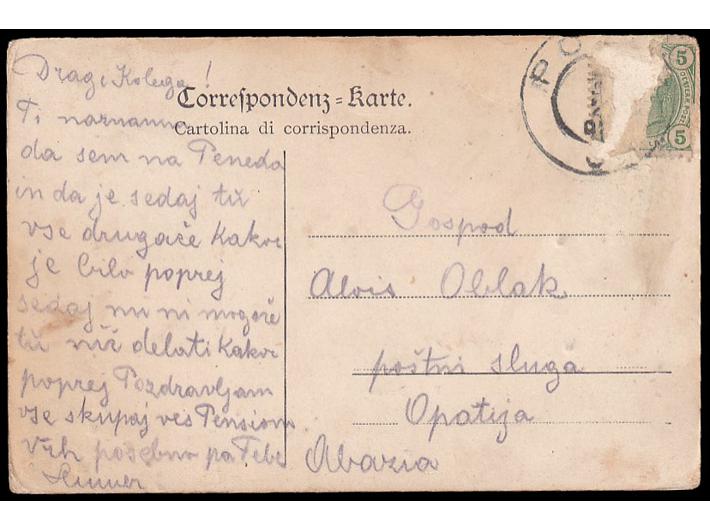 Dragi Kolega!
Correspondenz-Karte.
Cartolina di corrispondenza.
Ti naznanim
da sem na Peneda
in da je sedaj tū
vse drugače Kakor
je bilo poprej
sedaj mi ni mogoče
tū nič delati Kakor
poprej Pozdravljam
vse skupaj ves Pension
Vrh posebno pa Tebe
Gospod
Alois Oblak
poštni sluga
Opatija
Abazia
PO
5
5